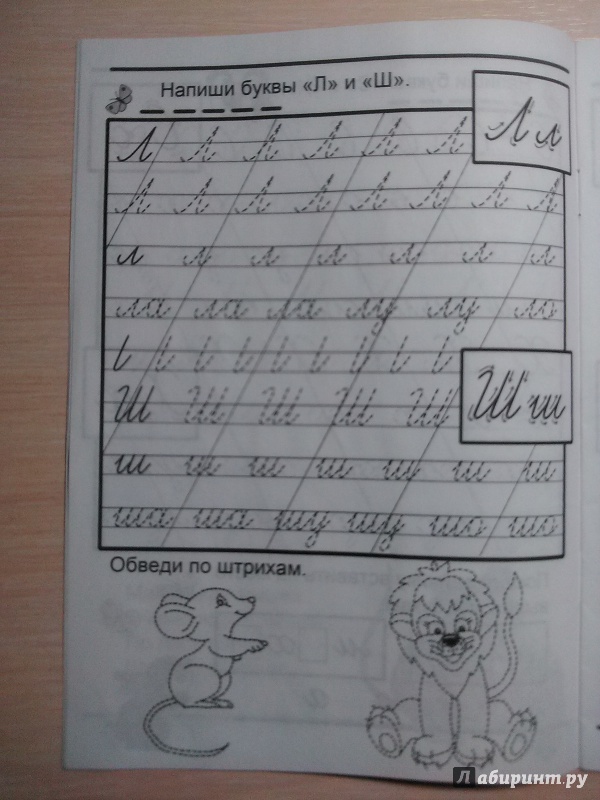 Напиши буквы «Л» и «Ш».
Л Л Л Л Л Лл
Л Л Л Л Л Л Л Л
л л л л л л л
ла ла ла лу лу ло
Ш Ш Ш Ш Ш Шш
ш ш ш ш ш ш ш
ша ша шу шу шо шо
Обведи по штрихам.
Лабиринт.ру